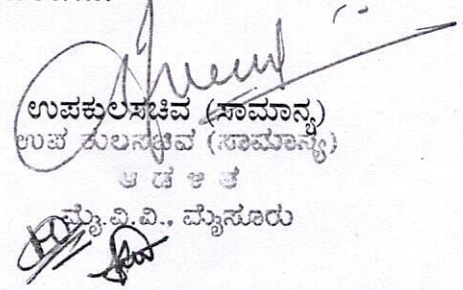 ಉಪಕುಲಸಚಿವ (ಸಾಮಾನ್ಯ)
ಉಪ ಕುಲಸಚಿವ (ಸಾಮಾನ್ಯ)
ಆ ಡ ಳಿ ತ
ಮೈ.ವಿ.ವಿ., ಮೈಸೂರು